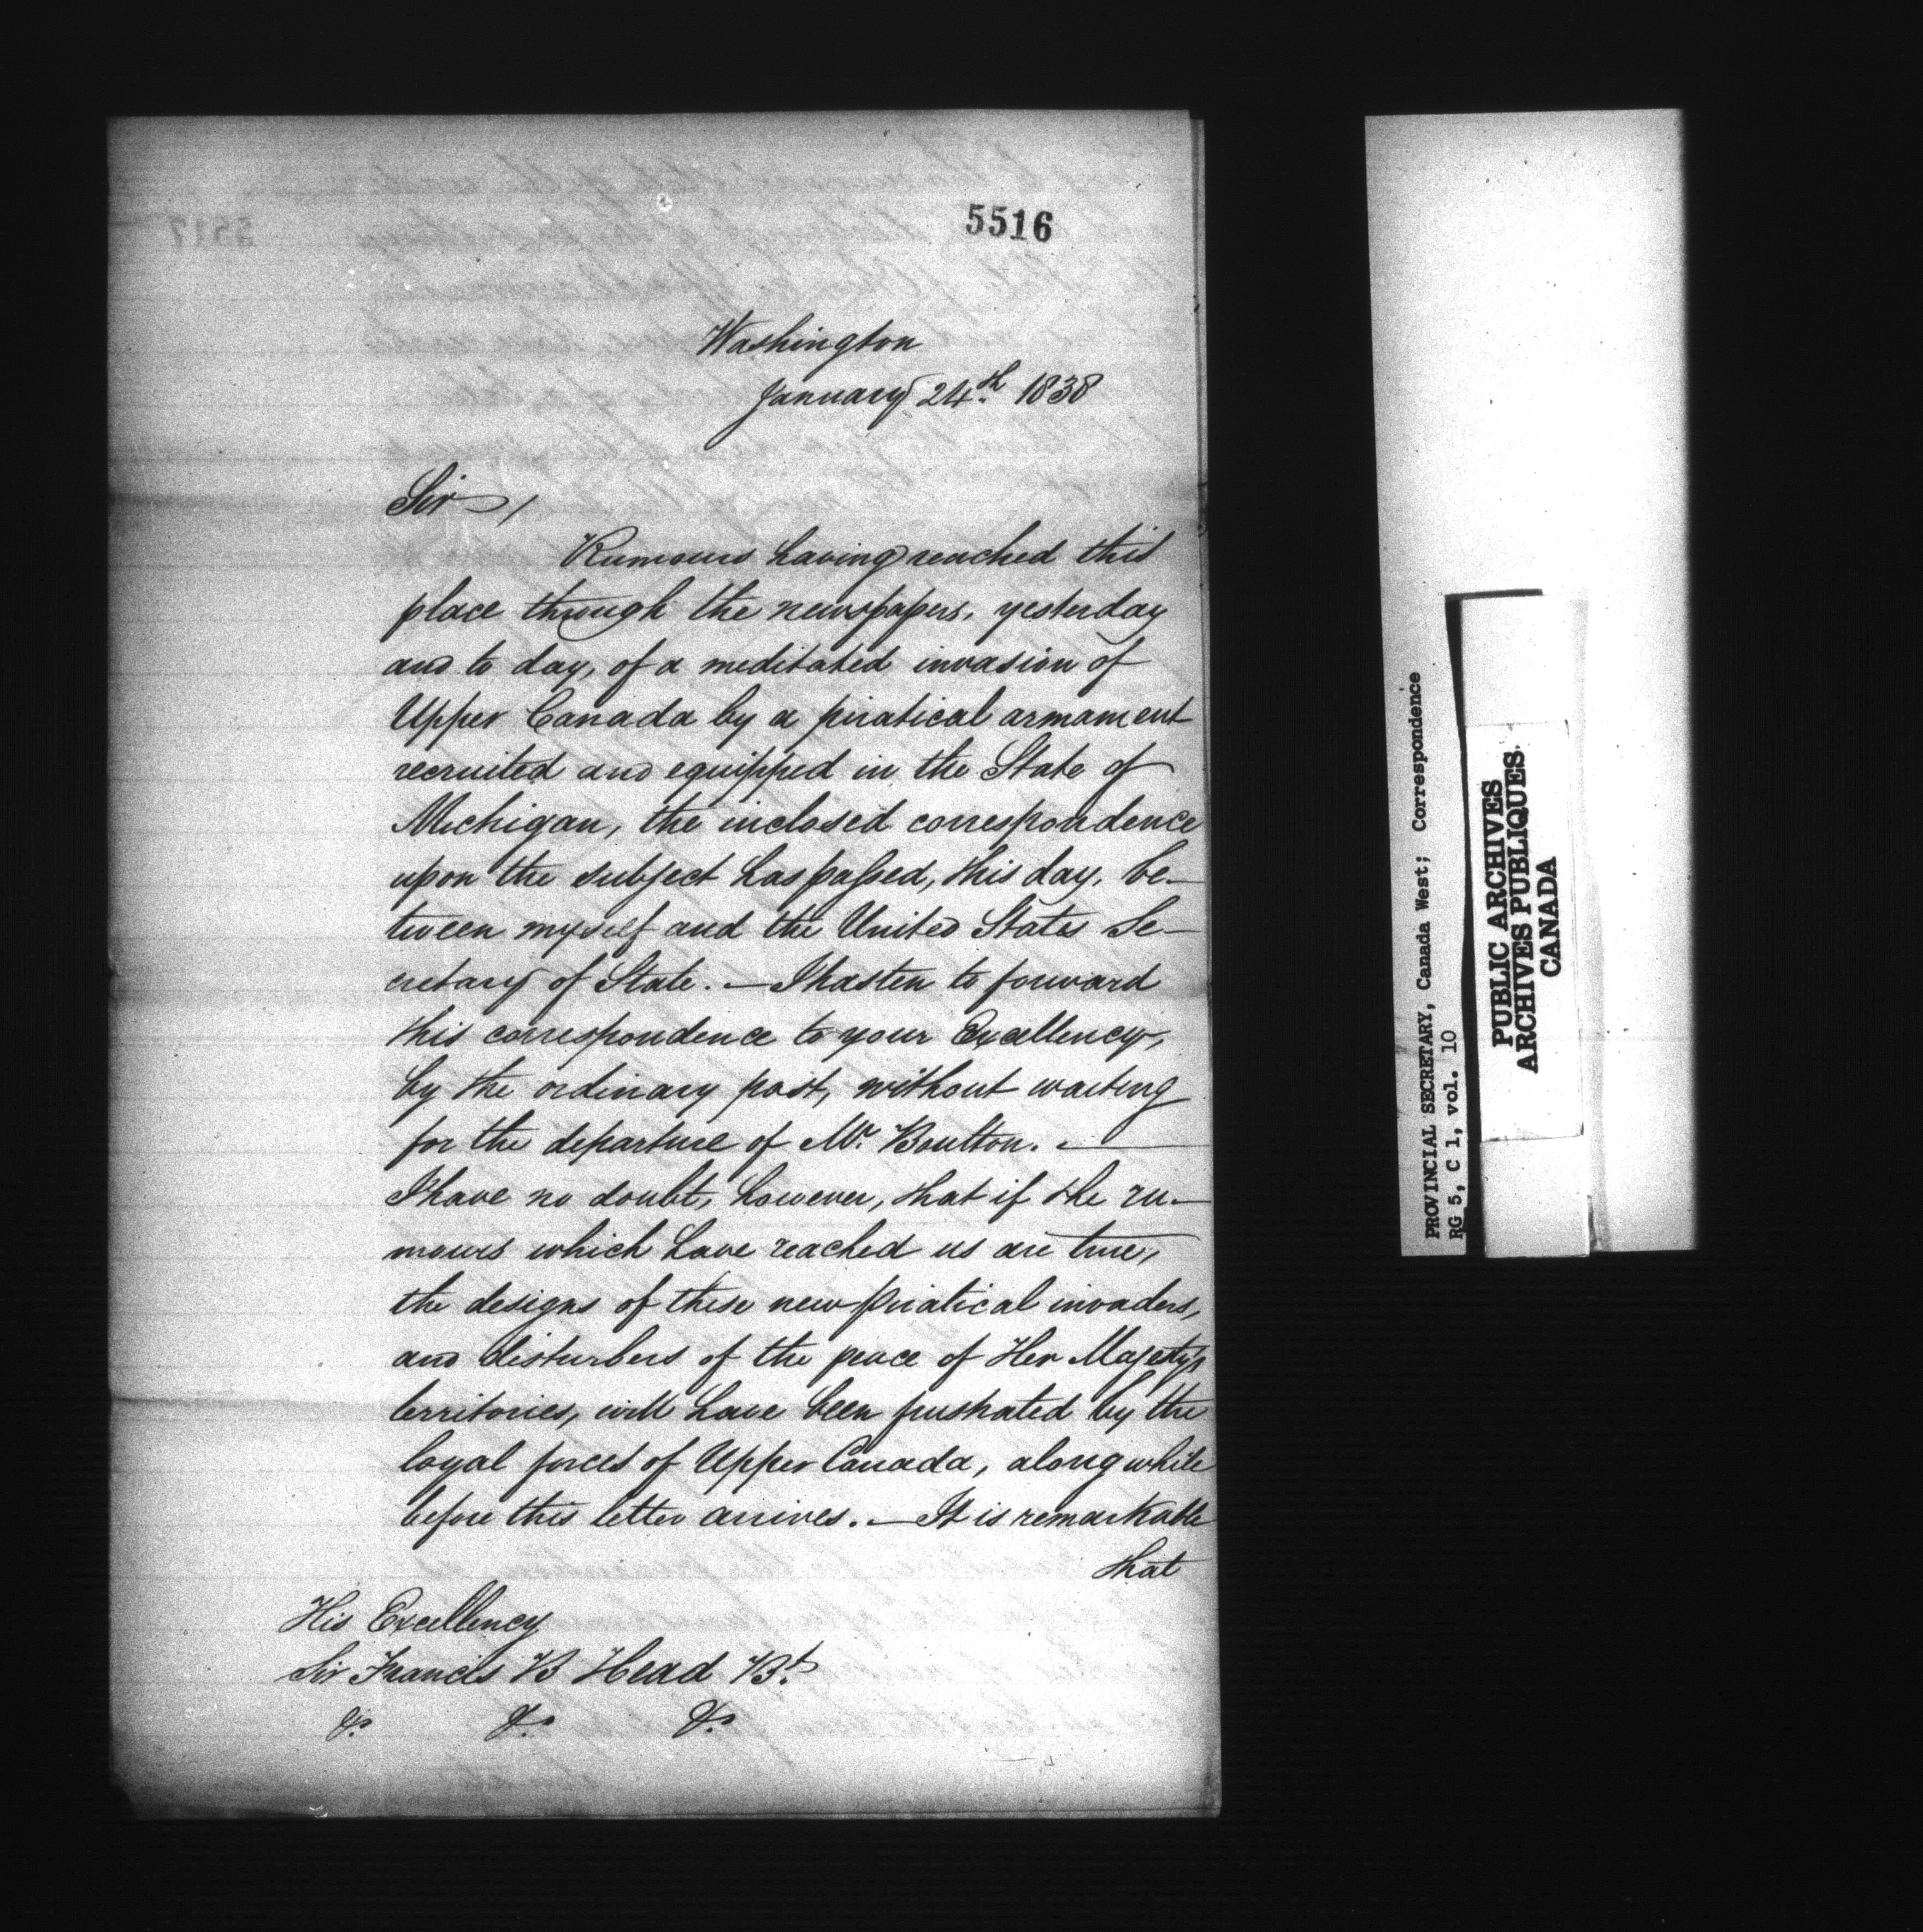 5516
Washington
January 24th. 1838
Sir,
Rumours having reached this
place through the newspapers, yesterday
and to day, of a meditated invasion of
Upper Canada by a piratical armament
recruited and equipped in the State of
Michigan, the inclosed correspondence
upon the subject has passed, this day, be-
tween myself and the United States Se-
cretary of State. — I hasten to forward
this correspondence to your Excellency,
by the ordinary post, without waiting
for the departure of Mr. Boulton. —
I have no doubt, however, that if the ru-
mours which have reached us are true,
the designs of these new piratical invaders,
and disturbers of the peace of Her Majesty's
territories, will have been frustrated by the
loyal forces of Upper Canada, along while
before this letter arrives. — It is remarkable
that
His Excellency
Sir Francis B Head Bt.
&c. &c. &c.
PROVINCIAL SECRETARY, Canada West; Correspondence
RG 5, C 1, vol. 10
PUBLIC ARCHIVES
ARCHIVES PUBLIQUES
CANADA